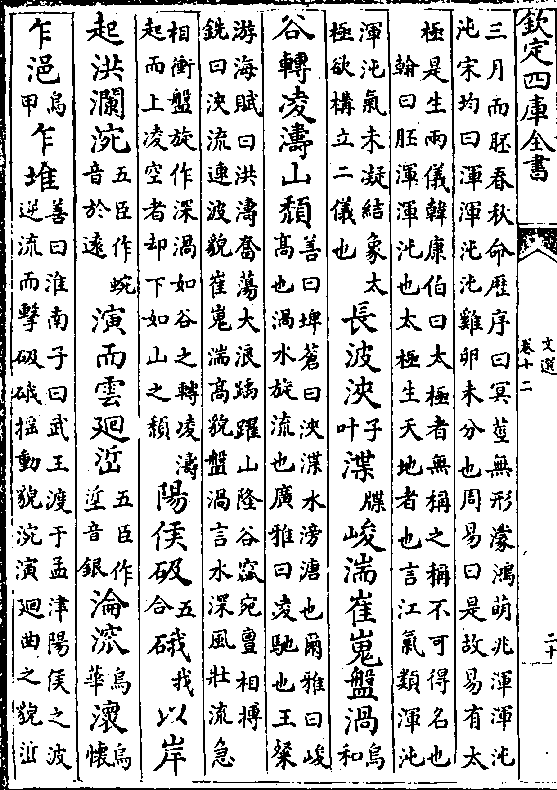 欽定四庫全書
文選
卷十二
二十
三月而胚春秋命歴序曰冥莖無形濛鴻萌兆渾渾沌
沌宋均曰渾渾沌沌雞卵未分也周易曰是故易有太
極是生兩儀韓康伯曰太極者無稱之稱不可得名也
翰曰胚渾渾沌也太極生天地者也言江氣類渾沌
渾沌氣未凝結象太
極欲構立二儀也
長波浹
子
叶
渫
牒
峻湍崔嵬盤渦
烏
和
谷轉凌濤山頽
善曰埤蒼曰浹渫水滂溏也爾雅曰峻
高也渦水旋流也廣雅曰凌馳也王粲
游海賦曰洪濤奮蕩大浪踊躍山隆谷窳宛亶相摶
銑曰浹流連波貌崔嵬湍高貌盤渦言水深風壯流急
相衝盤旋作深渦如谷之轉凌濤
起而上凌空者却下如山之頽
陽侯砐
五
合
硪
我
以岸
起洪瀾涴
五臣作蜿
音於逺
演而雲廻㳌
五臣作
垽音銀
淪㴽
烏
華
瀤
烏
懷
乍浥
烏
甲
乍堆
善曰淮南子曰武王渡于孟津陽侯之波
逆流而擊砐硪揺動貌涴演廻曲之貌㳌